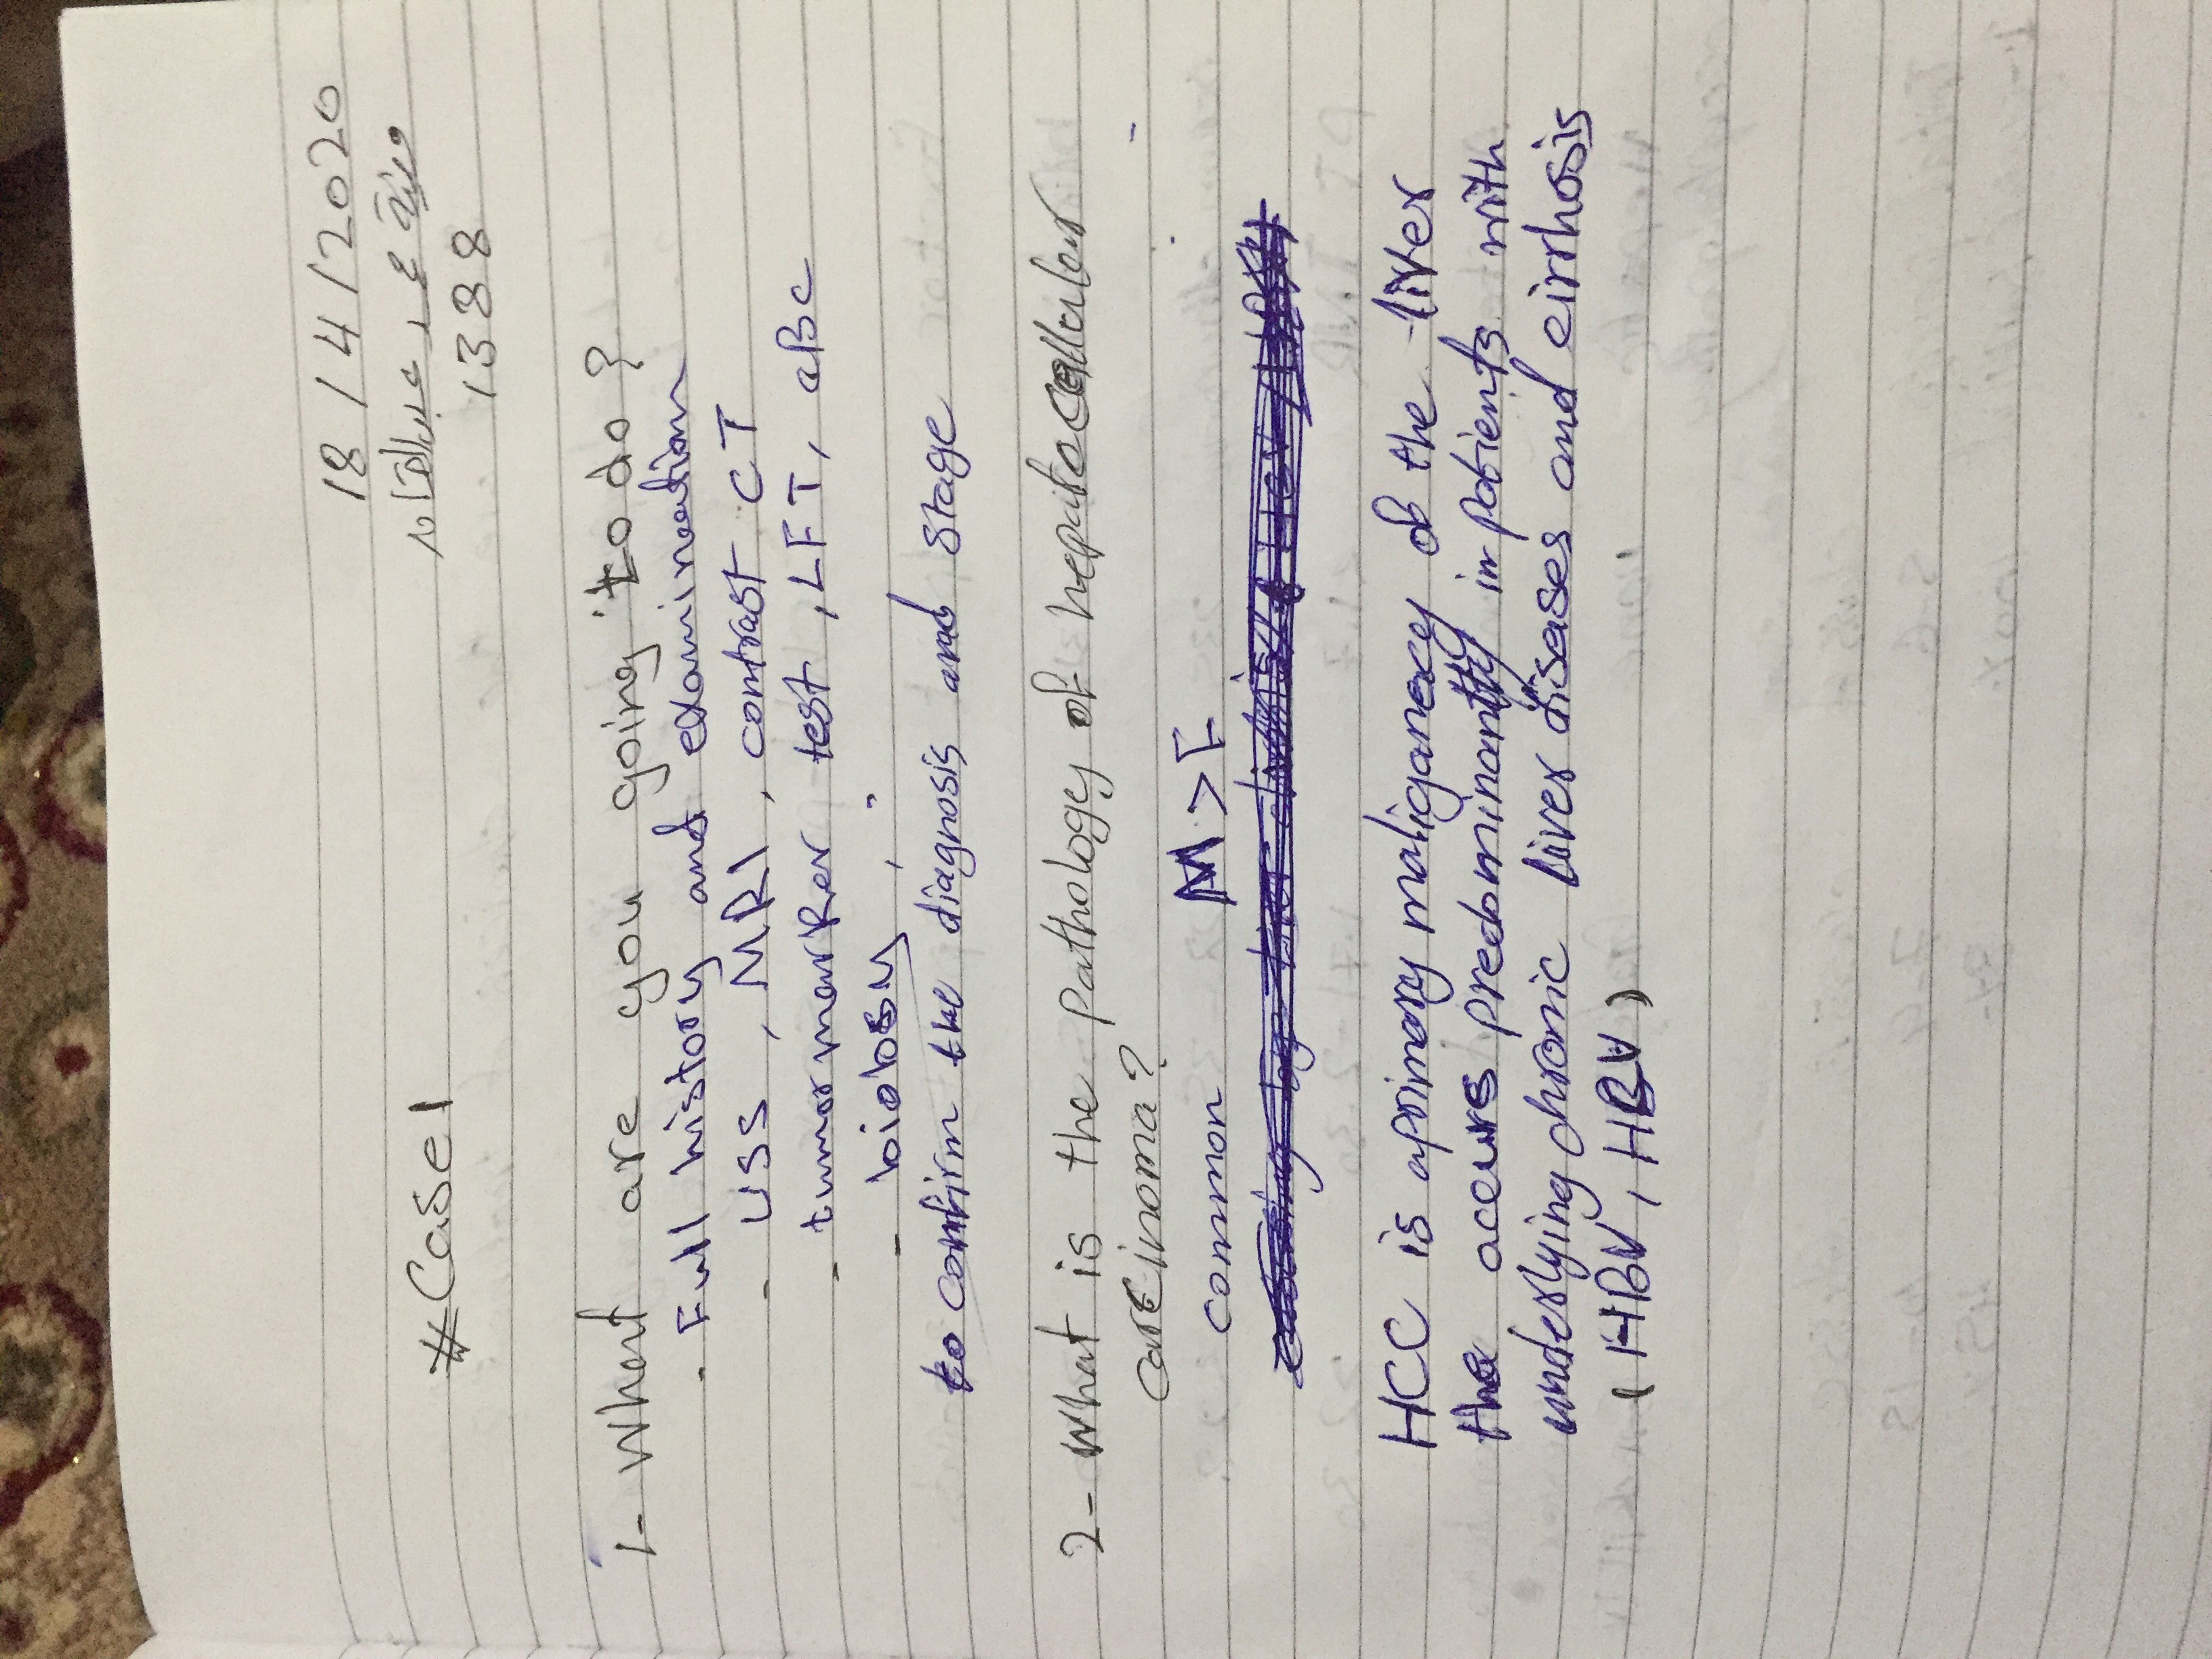 18/4/2020
#Case1
1388
1- What are you going to do?
- Full history and examination
- USS, MRI, contrast CT
- tumor marker test, LFT, CBC
- biobsy
to confirm the diagnosis and stage
2- What is the pathology of hepatocellular
carcinoma?
common M>F
HCC is aprimary maligancy of the liver
tha acurs predominantly in patients with
underlying chronic liver diseases and cirrhosis
(HBV, HBV)